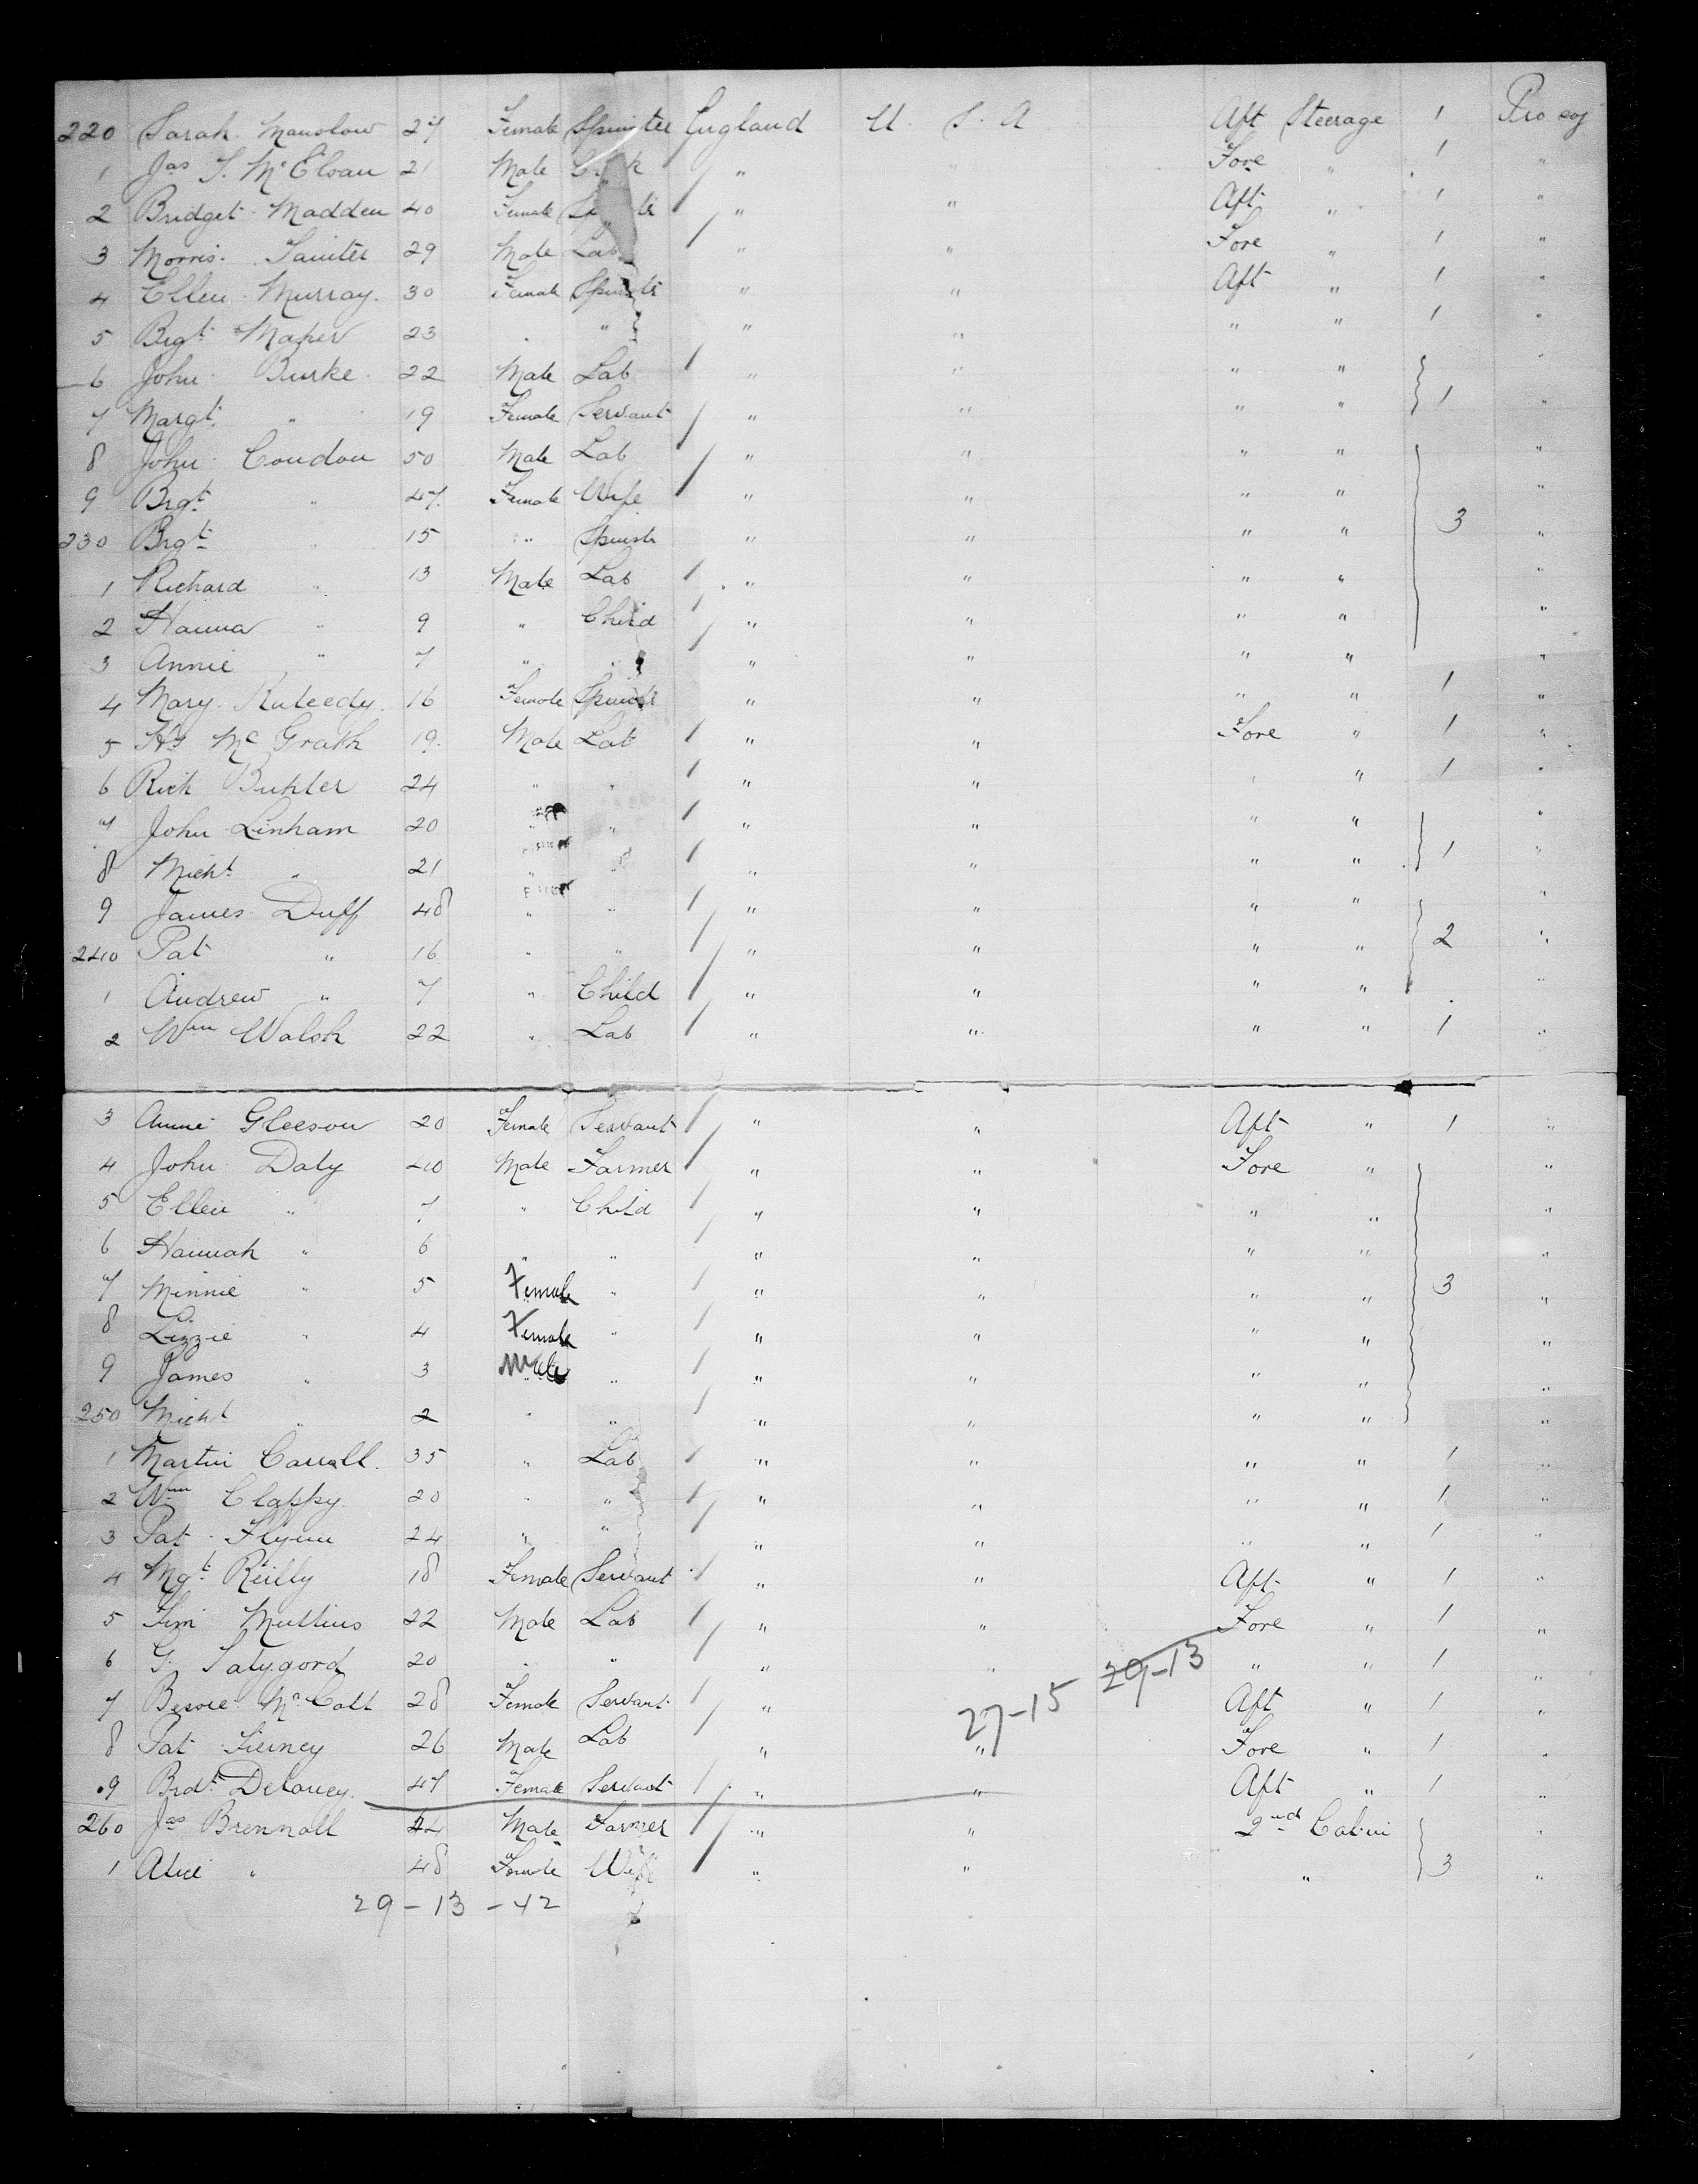 220 Sarah Manslow 27 Female Spinster England U. S. A Aft Steerage 1
1 Jas S. McElvan 21 Male " Fore " 1 "
2 Bridget Madden 40 Female " " Aft " 1 "
3 Morris 29 Male Lab " " Fore " 1 "
4 Ellen Murray 30 Female Spinstr " " Aft " 1 "
5 Brgt Maher 23 " " " " " " 1 "
6 John Burke 22 Male Lab " " " " "
7 Margt " 19 Female Servant " " " " 1 "
8 John Condon 50 Male Lab " " " " "
9 Brgt " 47 Female Wife " " " " "
230 Brgt " 15 " Spinstr " " " " 3 "
1 Richard " 13 Male Lab " " " " "
2 Hanna " 9 " Child " " " " "
3 Annie " 7 " " " " " " "
4 Mary 16 Female Spinstr " " " " 1 "
5 Hy McGrath 19 Male Lab " " Fore " 1 "
6 Rich Buhler 24 " " " " " " 1 "
7 John Linham 20 " " " " " " "
8 Michl " 21 " " " " " " 1 "
9 James Duff 48 " " " " " " "
240 Pat " 16 " " " " " " 2 "
1 Andrew " 7 " Child " " " " "
2 Wm Walsh 22 " Lab " " " " 1 "
3 Annie Gleeson 20 Female Servant " " Aft " 1 "
4 John Daly 40 Male Farmer " " Fore " "
5 Ellen " 7 " Child " " " " "
6 Hannah " 6 " " " " " " "
7 Minnie " 5 Female " " " " " 3 "
8 Lizzie " 4 Female " " " " " "
9 James " 3 Male " " " " " "
250 Michl " 2 " " " " " " "
1 Martin Carroll 35 " Lab " " " " 1 "
2 Wm Claffy 20 " " " " " " 1 "
3 Pat Flynn 24 " " " " " " 1 "
4 Mgt Reilly 18 Female Servant " " Aft " 1 "
5 Jim Mullins 22 Male Lab " " Fore " 1 "
6 G. 20 " " " " 29-13 " " 1 "
7 Bessie McColl 28 Female Servant " 27-15 Aft " 1 "
8 Pat Tierney 26 Male Lab " " Fore " 1 "
9 Brdt Delaney 47 Female Servant " " Aft " 1 "
260 Jas Brennall 44 Male Farmer " " 2nd Cabin "
1 Alice " 48 Female Wife " " " 3 "
29-13-42